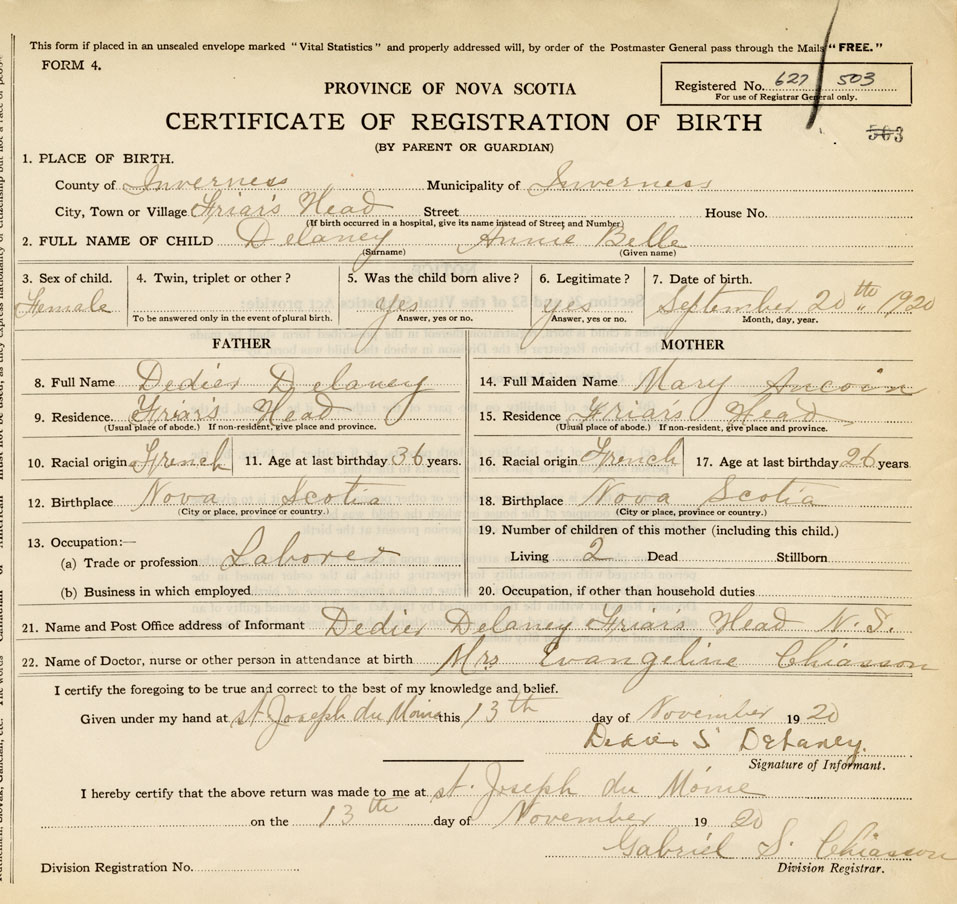 This form if placed in an unsealed envelope marked "Vital Statistics" and properly addressed will, by order of the Postmaster General pass through the Mails "FREE."
FORM 4.
Registered No. 627 503
For use of Registrar General only.
PROVINCE OF NOVA SCOTIA
CERTIFICATE OF REGISTRATION OF BIRTH
563
(BY PARENT OR GUARDIAN)
1. PLACE OF BIRTH.
County of Inverness Municipality of Inverness
City, Town or Village Friar's Head Street House No.
(If birth occurred in a hospital, give its name instead of Street and Number)
2. FULL NAME OF CHILD Delaney Annie Belle
(Surname) (Given name)
3. Sex of child. 4. Twin, triplet or other? 5. Was the child born alive? 6. Legitimate? 7. Date of birth.
Female yes yes September 20th 1920
To be answered only in the event of plural birth. Answer, yes or no. Answer, yes or no. Month, day, year.
FATHER MOTHER
8. Full Name Dedier Delaney 14. Full Maiden Name Mary Aucoin
9. Residence. Friar's Head 15. Residence Friar's Head
(Usual place of abode.) If non-resident, give place and province. (Usual place of abode.) If non-resident, give place and province.
10. Racial origin French 11. Age at last birthday 36 years. 16. Racial origin French 17. Age at last birthday 26 years
12. Birthplace Nova Scotia 18. Birthplace Nova Scotia
(City or place, province or country.) (City or place, province or country.)
13. Occupation:— 19. Number of children of this mother (including this child.)
(a) Trade or profession Laborer Living 2 Dead Stillborn
(b) Business in which employed 20. Occupation, if other than household duties
21. Name and Post Office address of Informant Dedier Delaney Friar's Head N.S.
22. Name of Doctor, nurse or other person in attendance at birth Mrs Evangeline Chiasson
I certify the foregoing to be true and correct to the best of my knowledge and belief.
Given under my hand at st Joseph du Moine this 13th day of November 1920
Dedier S Delaney.
Signature of Informant.
I hereby certify that the above return was made to me at st. Joseph du Moine
on the 13th day of November 1920
Gabriel S. Chiasson
Division Registration No. Division Registrar.